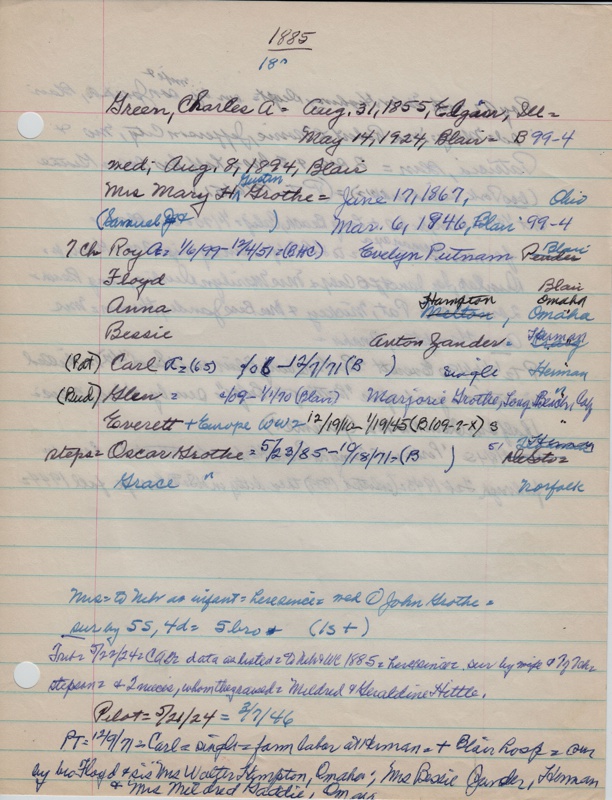 1885
18"
Green, Charles A = Aug. 31, 1855, Edgar, Ill =
May 14, 1924, Blair = B 99-4
med; Aug. 8, 1894, Blair
Gustin
Mrs Mary H Grothe = June 17, 1867, Ohio
(Samuel ) Mar. 6, 1946, Blair 99-4
7 ch Roy A = 1/6/99 - 12/4/51 = (BHC) Evelyn Putnam Pender Blair
Floyd Blair
Anna Hampton Melton, Omaha Omaha
Bessie Anton Zander = Herman
(Pat) Carl (65) - 12/7/71 (B ) single Herman
(Bud) Glen = /09 - 1/1/70 (Blair) Marjorie Grothe, Long Beach, Calif
Everett + Europe WW = 12/19/10 - 1/19/45 (B 109-2-X) s "
steps = Oscar Grothe = 5/23/85 - 10/18/71 = (B )
Grace " Norfolk
Mrs = to Nebr as infant = here since = med ① John Grothe =
sur by 5S, 4d = 5 bro + (1s +)
Trib = 5/22/24 = CAGr data as listed = to Neb & WC 1885 = here since = sur by wife & 7
stepson = & 2 nieces, whom they raised = Mildred & Geraldine Hittle.
Pilot = 5/21/24 = 3/7/46
PT = 12/9/71 = Carl = single = farm labor at Herman = + Blair hosp = sur
by bro Floyd & sis Mrs Walter Hampton, Omaha; Mrs Bessie Zander, Herman
& Mrs Mildred